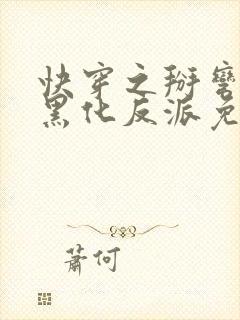 快穿之掰弯
黑化反派免
萧何